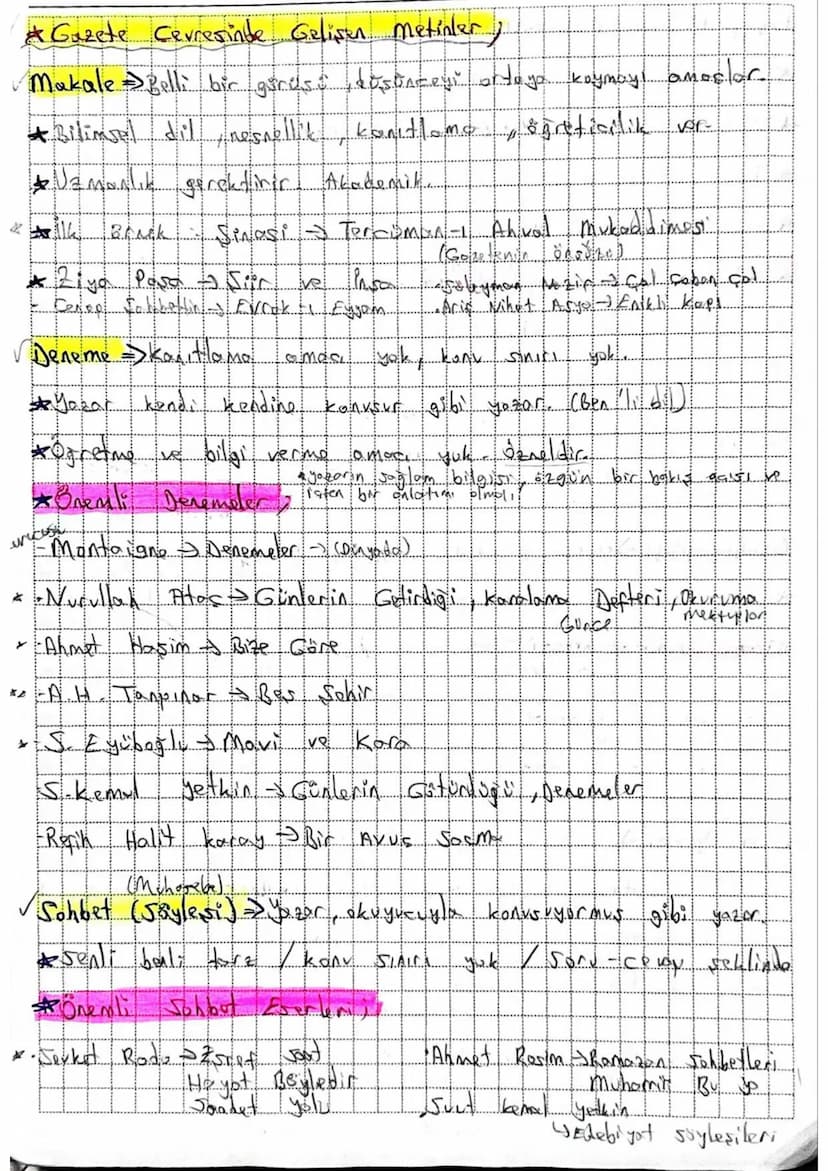 ★ Gazete Çevresinde Gelişen Metinler;
✓ Makale ⇒ Belli bir görüşü, düşünceyi ortaya koymayı amaçlar.
★ Bilimsel dil, nesnellik, kanıtlama, öğreticilik var.
★ Uzmanlık gerektirir. Akademik.
★ İlk örnek: Şinasi → Tercüman-ı Ahval Mukaddimesi
(Gazetenin önsözü)
★ Ziya Paşa → Şiir ve İnşa
• Süleyman Nazif → Çal Çoban Çal
- Cenap Şahbettin → Evrak-ı Eyyam
• Arif Nihat Asya → Enikli Kapı
✓ Deneme ⇒ Kanıtlama amacı yok, konu sınırı yok.
★ Yazar kendi kendine konuşur gibi yazar. (Ben'li dil)
★ Öğretme ve bilgi verme amacı yok. Özneldir.
★ yazarın sağlam bilgisi, özgün bir bakış açısı ve
içten bir anlatımı olmalı!
★ Önemli Denemeler;
- Montaigne → Denemeler → (Dünyada)
• Nurullah Ataç → Günlerin Getirdiği, Karalama Defteri, Okuruma
Mektuplar
Günce
- Ahmet Haşim → Bize Göre
- A.H. Tanpınar → Beş Şehir
- S. Eyüboğlu → Mavi ve Kara
S. Kemal Yetkin → Günlerin Götürdüğü, Denemeler
- Refik Halit Karay → Bir Avuç Saçma
(Muhasebe)
✓ Sohbet (Söyleşi) ⇒ Yazar, okuyucuyla konuşuyormuş gibi yazar.
★ Senli benli tarz / konu sınırı yok / Soru-cevap şeklinde
★ Önemli Sohbet Eserleri;
• Şevket Rado → Eşref Saat
Hayat Böyledir
Saadet Yolu
• Ahmet Rasim → Ramazan Sohbetleri
Muharrir Bu Ya
• Suut Kemal Yetkin
↳ Edebiyat söyleşileri